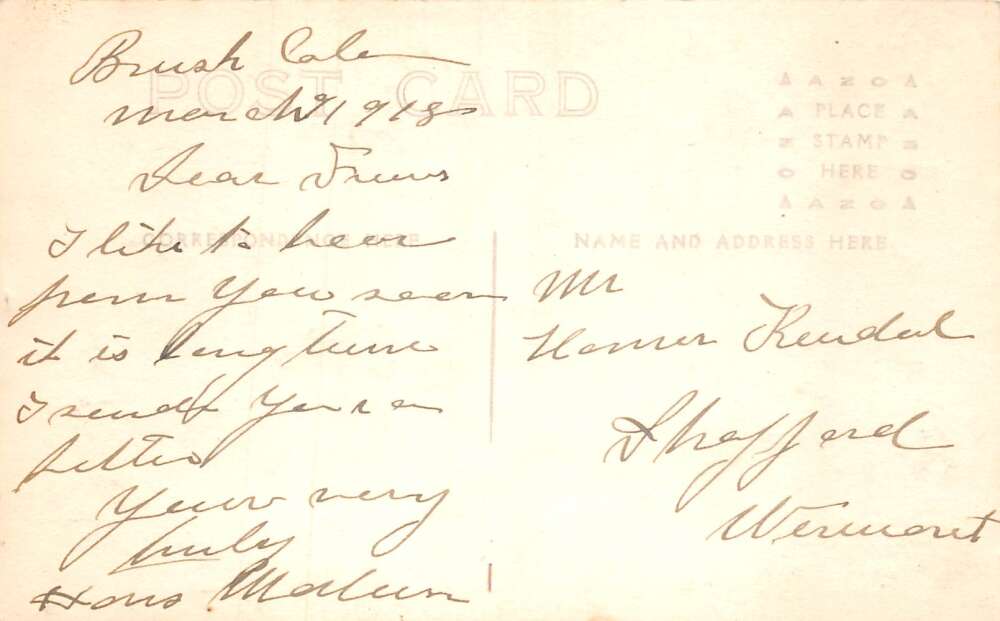 POST CARD
AZO
PLACE
STAMP
HERE
AZO
CORRESPONDENCE HERE
NAME AND ADDRESS HERE
Brush Colo
March 1918
Dear
I like to hear
from you soon
it is long time
I send you a
letter
your very
truly
Hans
Mr
Homer Kendal
Shafford
Wermont